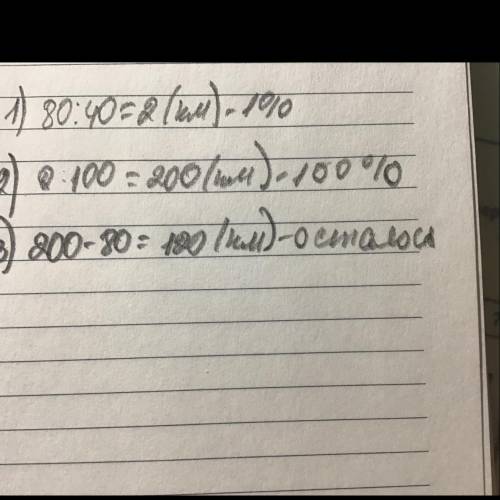 1) 80:40=2(км)-1%
2) 2·100=200(км)-100%
3) 200-80=120(км)-осталось